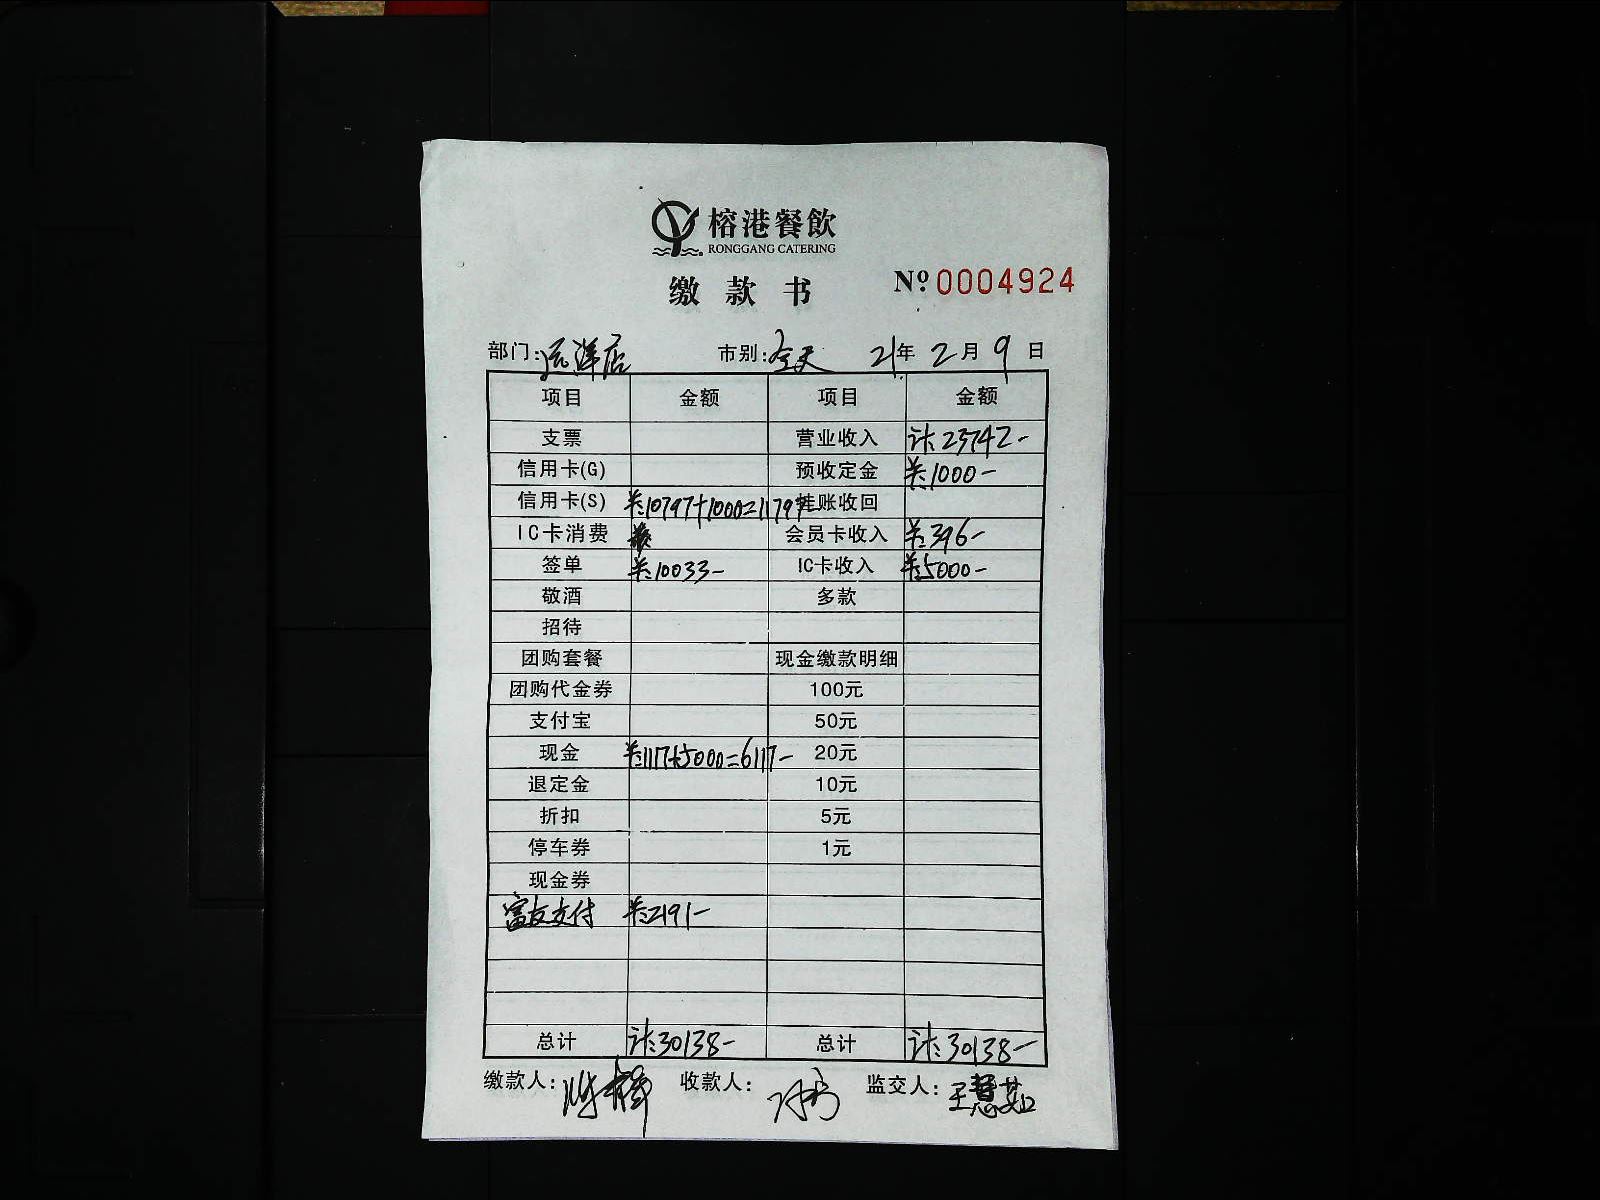 榕港餐飲
RONGGANG CATERING
缴款书
Nº 0004924
部门:远洋店 市别:全天 21年 2月 9日
项目 金额 项目 金额
支票 营业收入 计:23742-
信用卡(G) 预收定金 ¥:1000-
信用卡(S) ¥:10797+1000=11797 挂账收回
IC卡消费 会员卡收入 ¥:396-
签单 ¥:10033- IC卡收入 ¥:5000-
敬酒 多款
招待
团购套餐 现金缴款明细
团购代金券 100元
支付宝 50元
现金 ¥:1117+5000=6117- 20元
退定金 10元
折扣 5元
停车券 1元
现金券
富友支付 ¥:2191-
总计 计:30138- 总计 计:30138-
缴款人: 收款人: 监交人:王慧茹